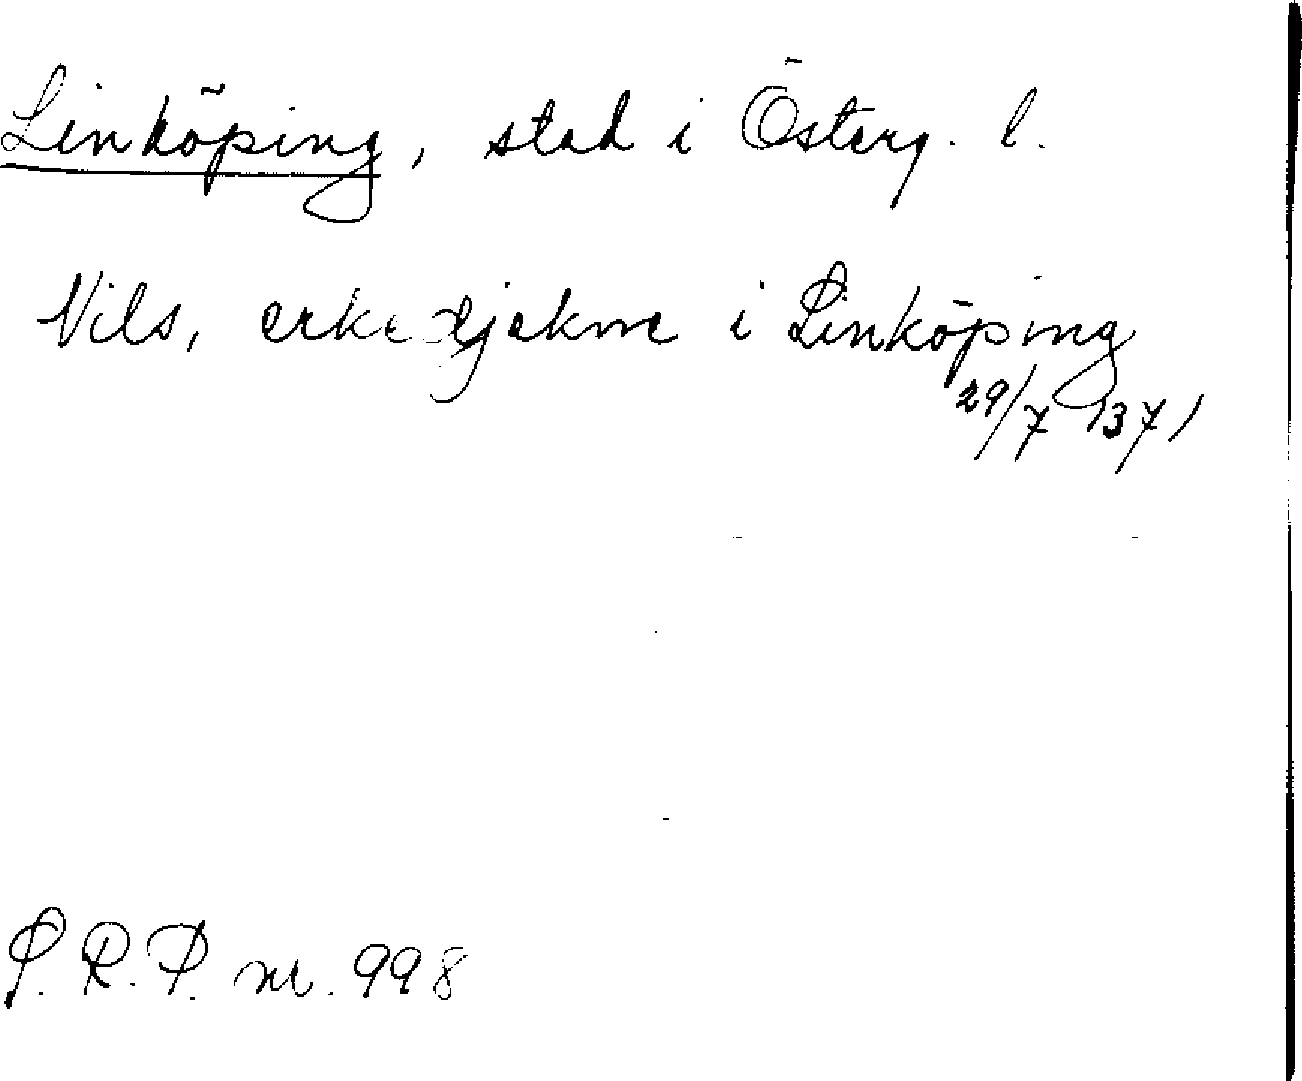 Linköping, stad i Österg. l.
Nils, erkedjekne i Linköping
29/7 1371
S. R. P. nr. 998